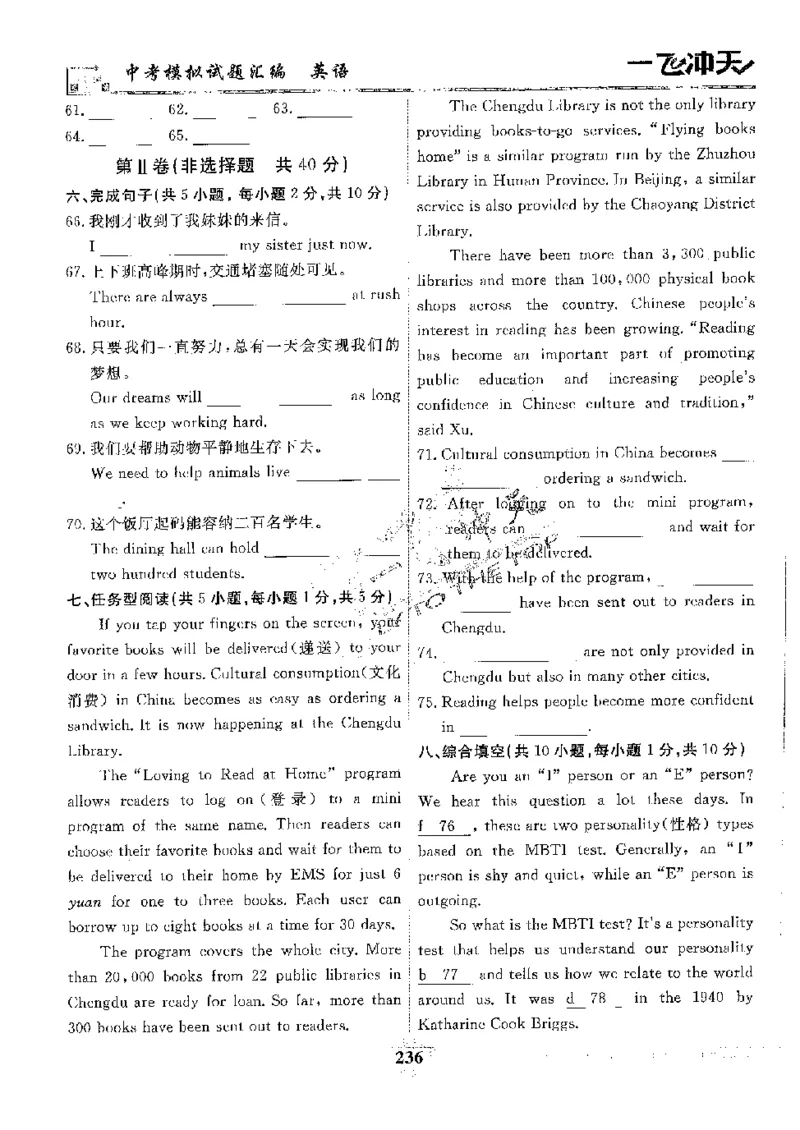 中考模拟试题汇编 英语
一飞冲天
61. ____ 62. ____ 63. ____
64. ____ 65. ____
第Ⅱ卷(非选择题 共 40 分)
六、完成句子(共 5 小题, 每小题 2 分,共 10 分)
66. 我刚才收到了我妹妹的来信。
I ____ ____ my sister just now.
67. 上下班高峰期时,交通堵塞随处可见。
There are always ____ ____ at rush
hour.
68. 只要我们一直努力,总有一天会实现我们的
梦想。
Our dreams will ____ ____ as long
as we keep working hard.
69. 我们要帮助动物平静地生存下去。
We need to help animals live ____ ____
.
70. 这个饭厅起码能容纳二百名学生。
The dining hall can hold ____ ____
two hundred students.
七、任务型阅读(共 5 小题,每小题 1 分,共 5 分)
If you tap your fingers on the screen, your
favorite books will be delivered(递送) to your
door in a few hours. Cultural consumption(文化
消费) in China becomes as easy as ordering a
sandwich. It is now happening at the Chengdu
Library.
The “Loving to Read at Home” program
allows readers to log on (登录) to a mini
program of the same name. Then readers can
choose their favorite books and wait for them to
be delivered to their home by EMS for just 6
yuan for one to three books. Each user can
borrow up to eight books at a time for 30 days.
The program covers the whole city. More
than 20,000 books from 22 public libraries in
Chengdu are ready for loan. So far, more than
300 books have been sent out to readers.
The Chengdu Library is not the only library
providing books-to-go services. “Flying books
home” is a similar program run by the Zhuzhou
Library in Hunan Province. In Beijing, a similar
service is also provided by the Chaoyang District
Library.
There have been more than 3,300 public
libraries and more than 100,000 physical book
shops across the country. Chinese people's
interest in reading has been growing. “Reading
has become an important part of promoting
public education and increasing people's
confidence in Chinese culture and tradition,”
said Xu.
71. Cultural consumption in China becomes ____
____ ordering a sandwich.
72. After logging on to the mini program,
readers can ____ ____ and wait for
them to be delivered.
73. With the help of the program, ____ ____
____ have been sent out to readers in
Chengdu.
74. ____ ____ are not only provided in
Chengdu but also in many other cities.
75. Reading helps people become more confident
in ____ ____.
八、综合填空(共 10 小题,每小题 1 分,共 10 分)
Are you an “I” person or an “E” person?
We hear this question a lot these days. In
f 76 , these are two personality(性格) types
based on the MBTI test. Generally, an “I”
person is shy and quiet, while an “E” person is
outgoing.
So what is the MBTI test? It's a personality
test that helps us understand our personality
b 77 and tells us how we relate to the world
around us. It was d 78 in the 1940 by
Katharine Cook Briggs.
236